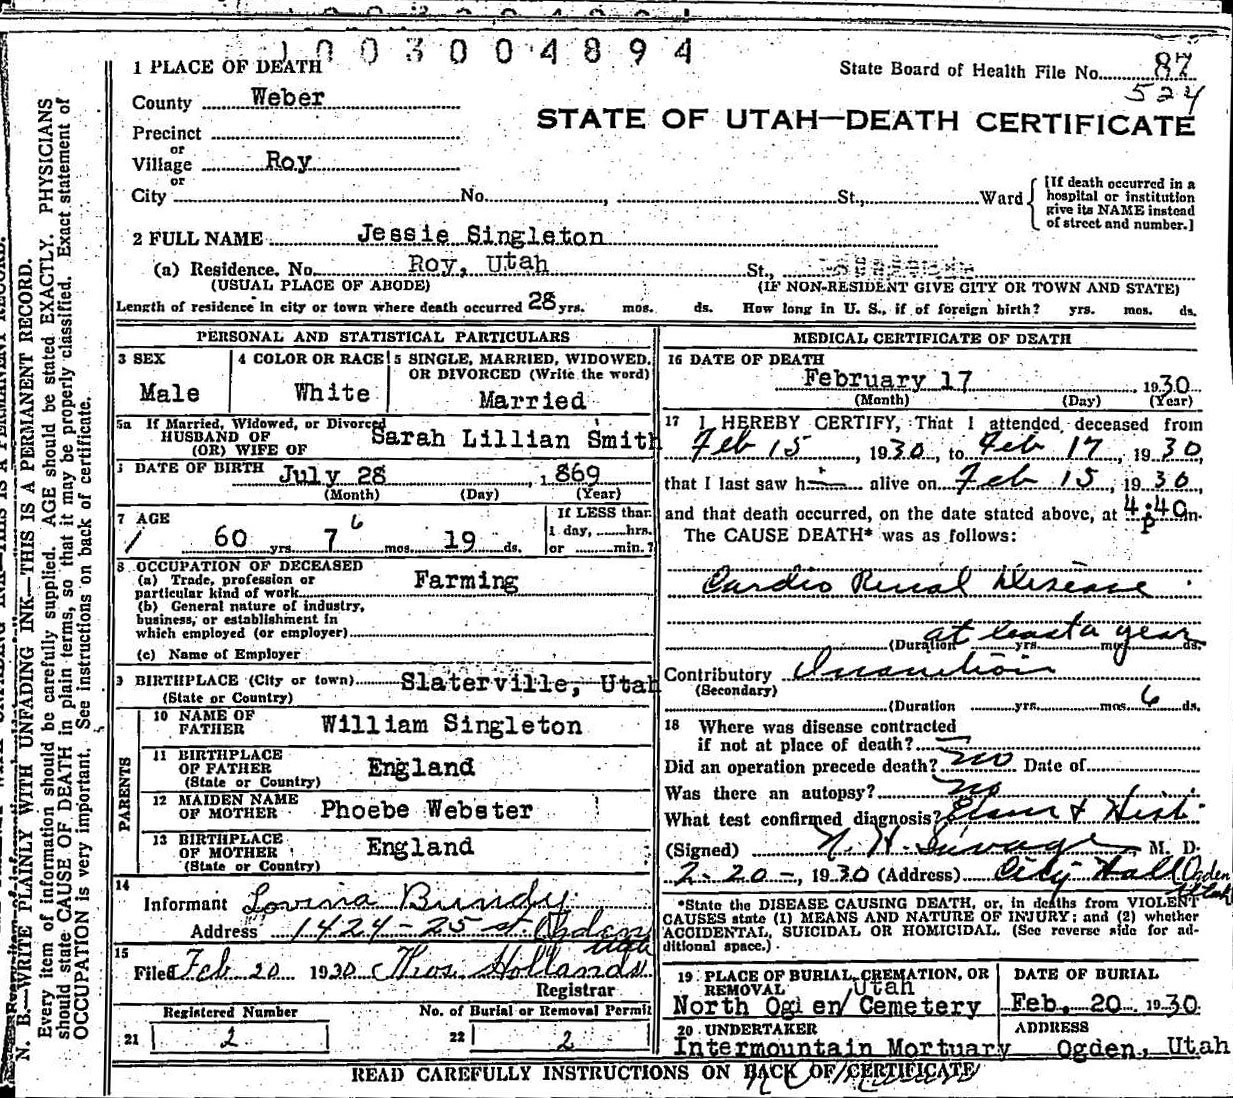 1003004894
1 PLACE OF DEATH
State Board of Health File No. 87
524
County Weber
STATE OF UTAH—DEATH CERTIFICATE
Precinct
or
Village Roy
or
City No. , St., Ward
[If death occurred in a hospital or institution give its NAME instead of street and number.]
2 FULL NAME Jessie Singleton
(a) Residence. No. Roy, Utah St.,
(USUAL PLACE OF ABODE) (IF NON-RESIDENT GIVE CITY OR TOWN AND STATE)
Length of residence in city or town where death occurred 28 yrs. mos. ds. How long in U. S., if of foreign birth? yrs. mos. ds.
PERSONAL AND STATISTICAL PARTICULARS
3 SEX
Male
4 COLOR OR RACE
White
5 SINGLE, MARRIED, WIDOWED,
OR DIVORCED (Write the word)
Married
5a If Married, Widowed, or Divorced
HUSBAND OF
(OR) WIFE OF
Sarah Lillian Smith
DATE OF BIRTH July 28, 1869
(Month) (Day) (Year)
7 AGE
60 yrs. 7 6 mos. 19 ds.
If LESS than
1 day, hrs.
or min.?
8 OCCUPATION OF DECEASED
(a) Trade, profession or
particular kind of work Farming
(b) General nature of industry,
business, or establishment in
which employed (or employer)
(c) Name of Employer
9 BIRTHPLACE (City or town) Slaterville, Utah
(State or Country)
PARENTS
10 NAME OF
FATHER William Singleton
11 BIRTHPLACE
OF FATHER England
(State or Country)
12 MAIDEN NAME
OF MOTHER Phoebe Webster
13 BIRTHPLACE
OF MOTHER England
(State or Country)
14
Informant Lovina Bundy
Address 1424-25 st. Ogden
Utah
15
Filed Feb 20 1930 Thos. Hollands
Registrar
Registered Number
21 2
No. of Burial or Removal Permit
22 2
MEDICAL CERTIFICATE OF DEATH
16 DATE OF DEATH
February 17 1930
(Month) (Day) (Year)
17 I HEREBY CERTIFY, That I attended deceased from
Feb 15, 1930, to Feb 17, 1930,
that I last saw h alive on Feb 15, 1930,
and that death occurred, on the date stated above, at 4:40 p m.
The CAUSE DEATH* was as follows:
Cardio Renal Disease
at least a year
(Duration yrs. mos. ds.
Contributory Inanition
(Secondary)
(Duration yrs. mos. 6 ds.
18 Where was disease contracted
if not at place of death?
Did an operation precede death? no Date of
Was there an autopsy? no
What test confirmed diagnosis? & Hist.
(Signed) N. H. Savage M. D.
2-20-, 1930 (Address) City Hall Ogden
Utah
*State the DISEASE CAUSING DEATH, or, in deaths from VIOLENT
CAUSES state (1) MEANS AND NATURE OF INJURY; and (2) whether
ACCIDENTAL, SUICIDAL OR HOMICIDAL. (See reverse side for ad-
ditional space.)
19 PLACE OF BURIAL, CREMATION, OR
REMOVAL Utah
North Ogden Cemetery
DATE OF BURIAL
Feb. 20 1930
20 UNDERTAKER
Intermountain Mortuary
ADDRESS
Ogden, Utah
READ CAREFULLY INSTRUCTIONS ON BACK OF CERTIFICATE
N. B.—WRITE PLAINLY WITH UNFADING INK—THIS IS A PERMANENT RECORD.
Every item of information should be carefully supplied. AGE should be stated EXACTLY. PHYSICIANS
should state CAUSE OF DEATH in plain terms, so that it may be properly classified. Exact statement of
OCCUPATION is very important. See instructions on back of certificate.